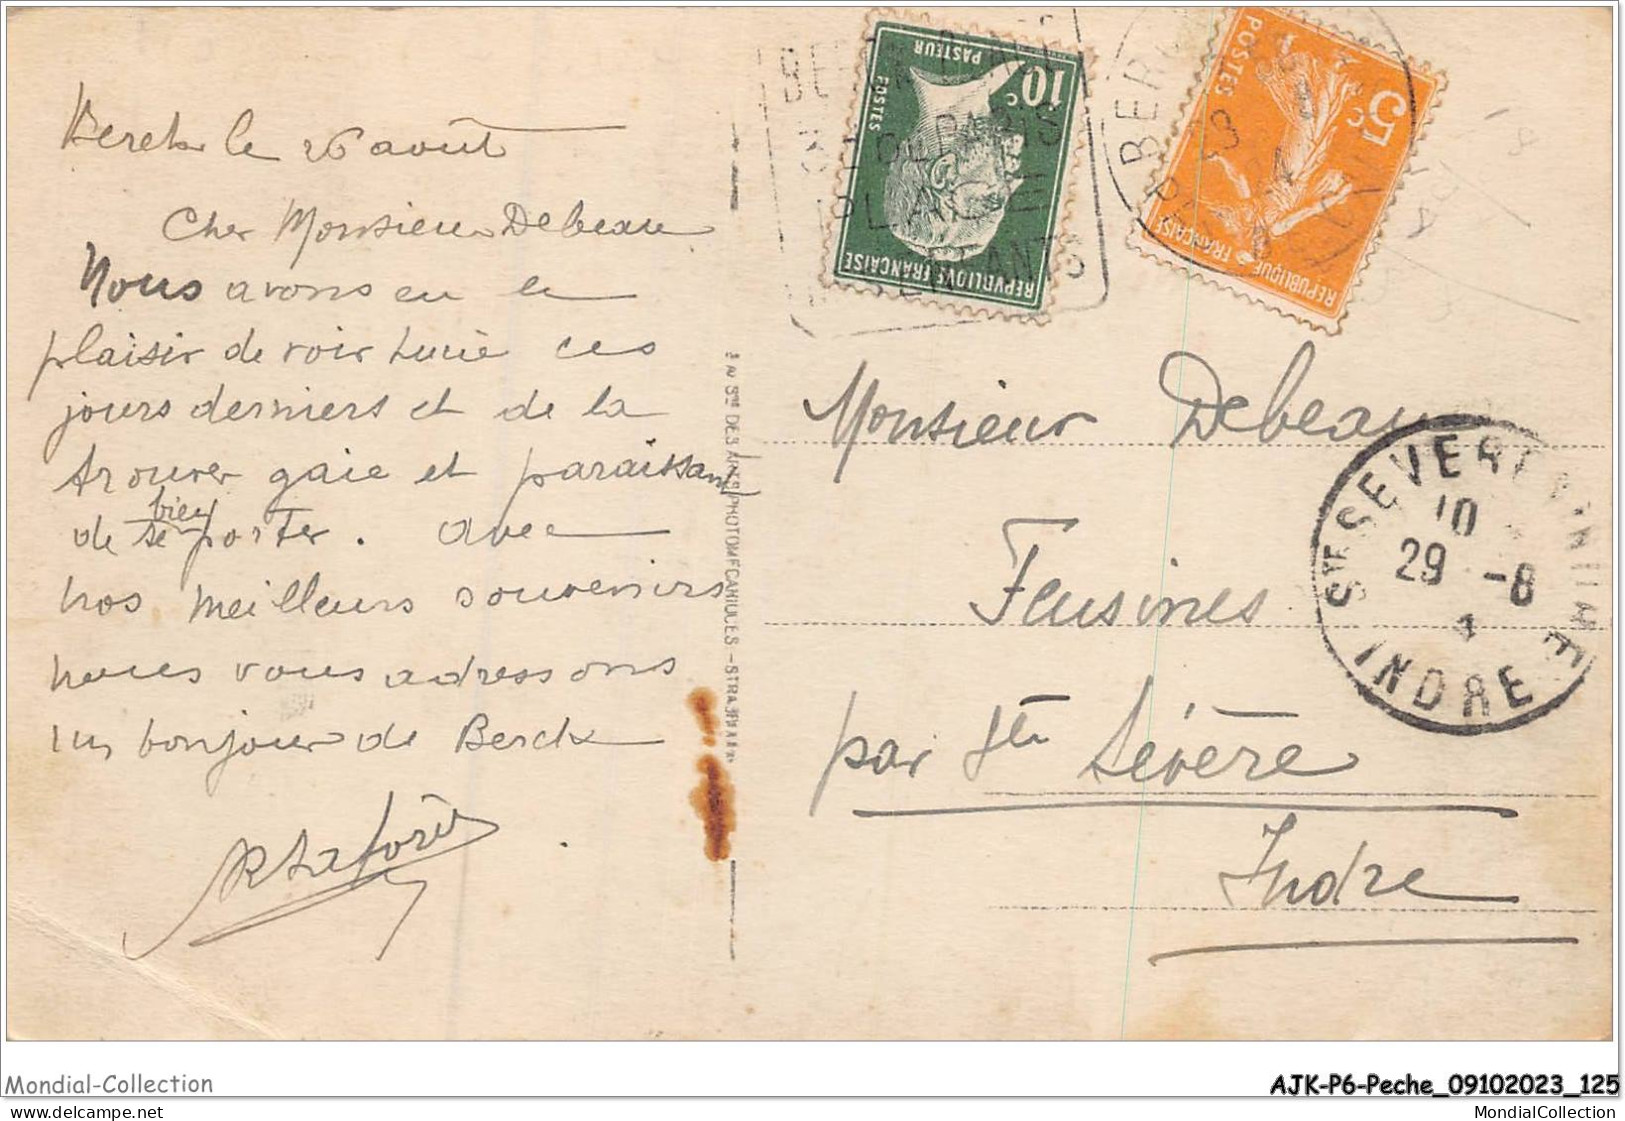 Berck le 26 août
Cher Monsieur Debeau
Nous avons eu le
plaisir de voir Lucie ces
jours derniers et de la
trouver gaie et paraissant
de se bien porter. avec
nos meilleurs souvenirs
nous vous adressons
un bonjour de Berck
RÉPUBLIQUE FRANÇAISE
POSTES
PASTEUR
10c
POSTES
5c
RÉPUBLIQUE FRANÇAISE
BERCK
PLAGE
Monsieur Debeau
Feusines
par Ste Sévère
Indre
STE SEVERE
10
29 -8
INDRE
Mondial-Collection
AJK-P6-Peche_09102023_125
(C) www.delcampe.net
MondialCollection